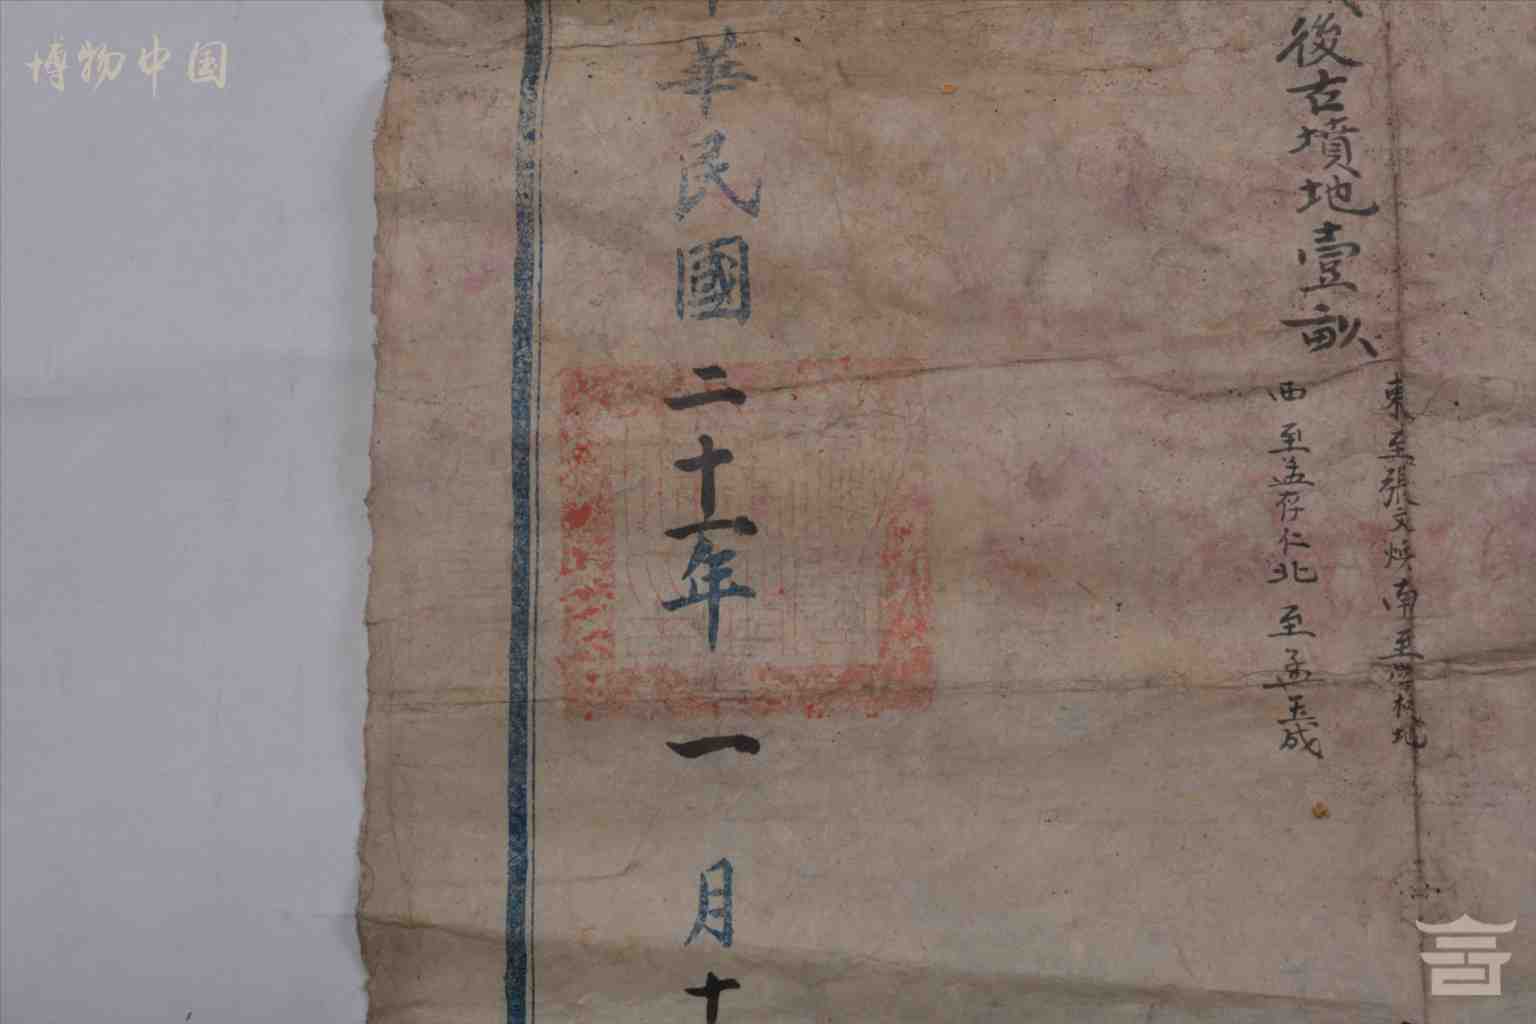 博物中国
後古墳地壹畝
東至張文煥南至
西至孟存仁北至孟玉成
華民國二十一年一月十